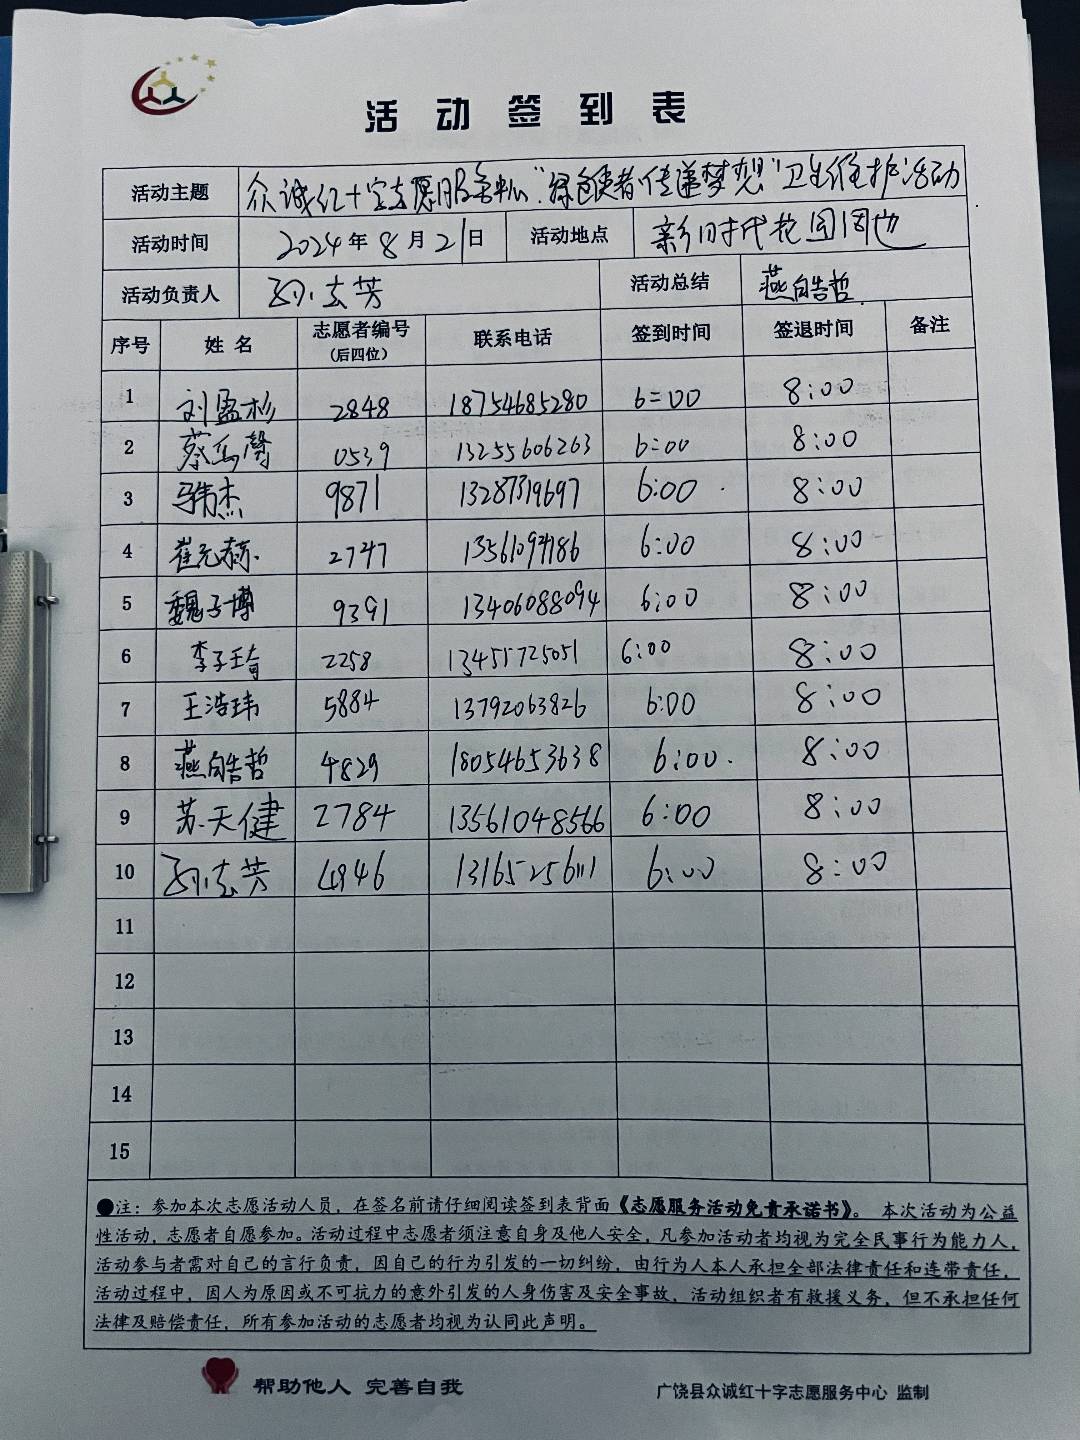 活动签到表
活动主题 众诚红十字志愿服务中心"绿色使者传递梦想"卫生维护活动
活动时间 2024年8月21日 活动地点 新时代花园周边
活动负责人 孙志芳 活动总结 燕皓哲
序号 姓名 志愿者编号（后四位） 联系电话 签到时间 签退时间 备注
1 刘盈杉 2848 18754685280 6:00 8:00
2 蔡馨 0539 13255606263 6:00 8:00
3 马韦杰 9871 13287319697 6:00 8:00
4 崔元 2747 13561094186 6:00 8:00
5 魏子博 9391 13406088094 6:00 8:00
6 李子琦 2258 13455725051 6:00 8:00
7 王浩玮 5884 13792063826 6:00 8:00
8 燕皓哲 4829 18054653638 6:00 8:00
9 苏天健 2784 13561048566 6:00 8:00
10 孙志芳 4946 13165256111 6:00 8:00
11
12
13
14
15
●注：参加本次志愿活动人员，在签名前请仔细阅读签到表背面《志愿服务活动免责承诺书》。本次活动为公益
性活动，志愿者自愿参加。活动过程中志愿者须注意自身及他人安全，凡参加活动者均视为完全民事行为能力人，
活动参与者需对自己的言行负责，因自己的行为引发的一切纠纷，由行为人本人承担全部法律责任和连带责任，
活动过程中，因人为原因或不可抗力的意外引发的人身伤害及安全事故，活动组织者有救援义务，但不承担任何
法律及赔偿责任，所有参加活动的志愿者均视为认同此声明。
帮助他人 完善自我 广饶县众诚红十字志愿服务中心 监制